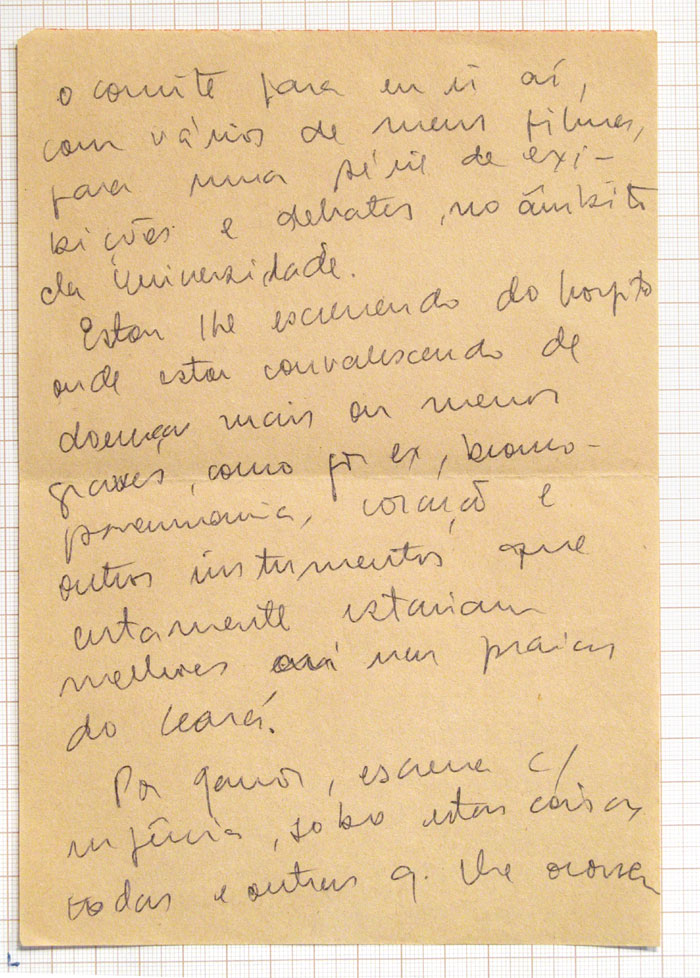 o convite para eu ir aí,
com vários de meus filmes,
para uma série de exi-
bições e debates, no âmbito
da Universidade.
Estou lhe escrevendo do hospital
onde estou convalescendo de
doenças mais ou menos
graves, como por ex, bronco-
pneumonia, coração e
outros instrumentos que
certamente estariam
melhores nas praias
do Ceará.
Por favor, escreva c/
urgência, sobre estas coisas
todas e outras q. lhe ocorrer